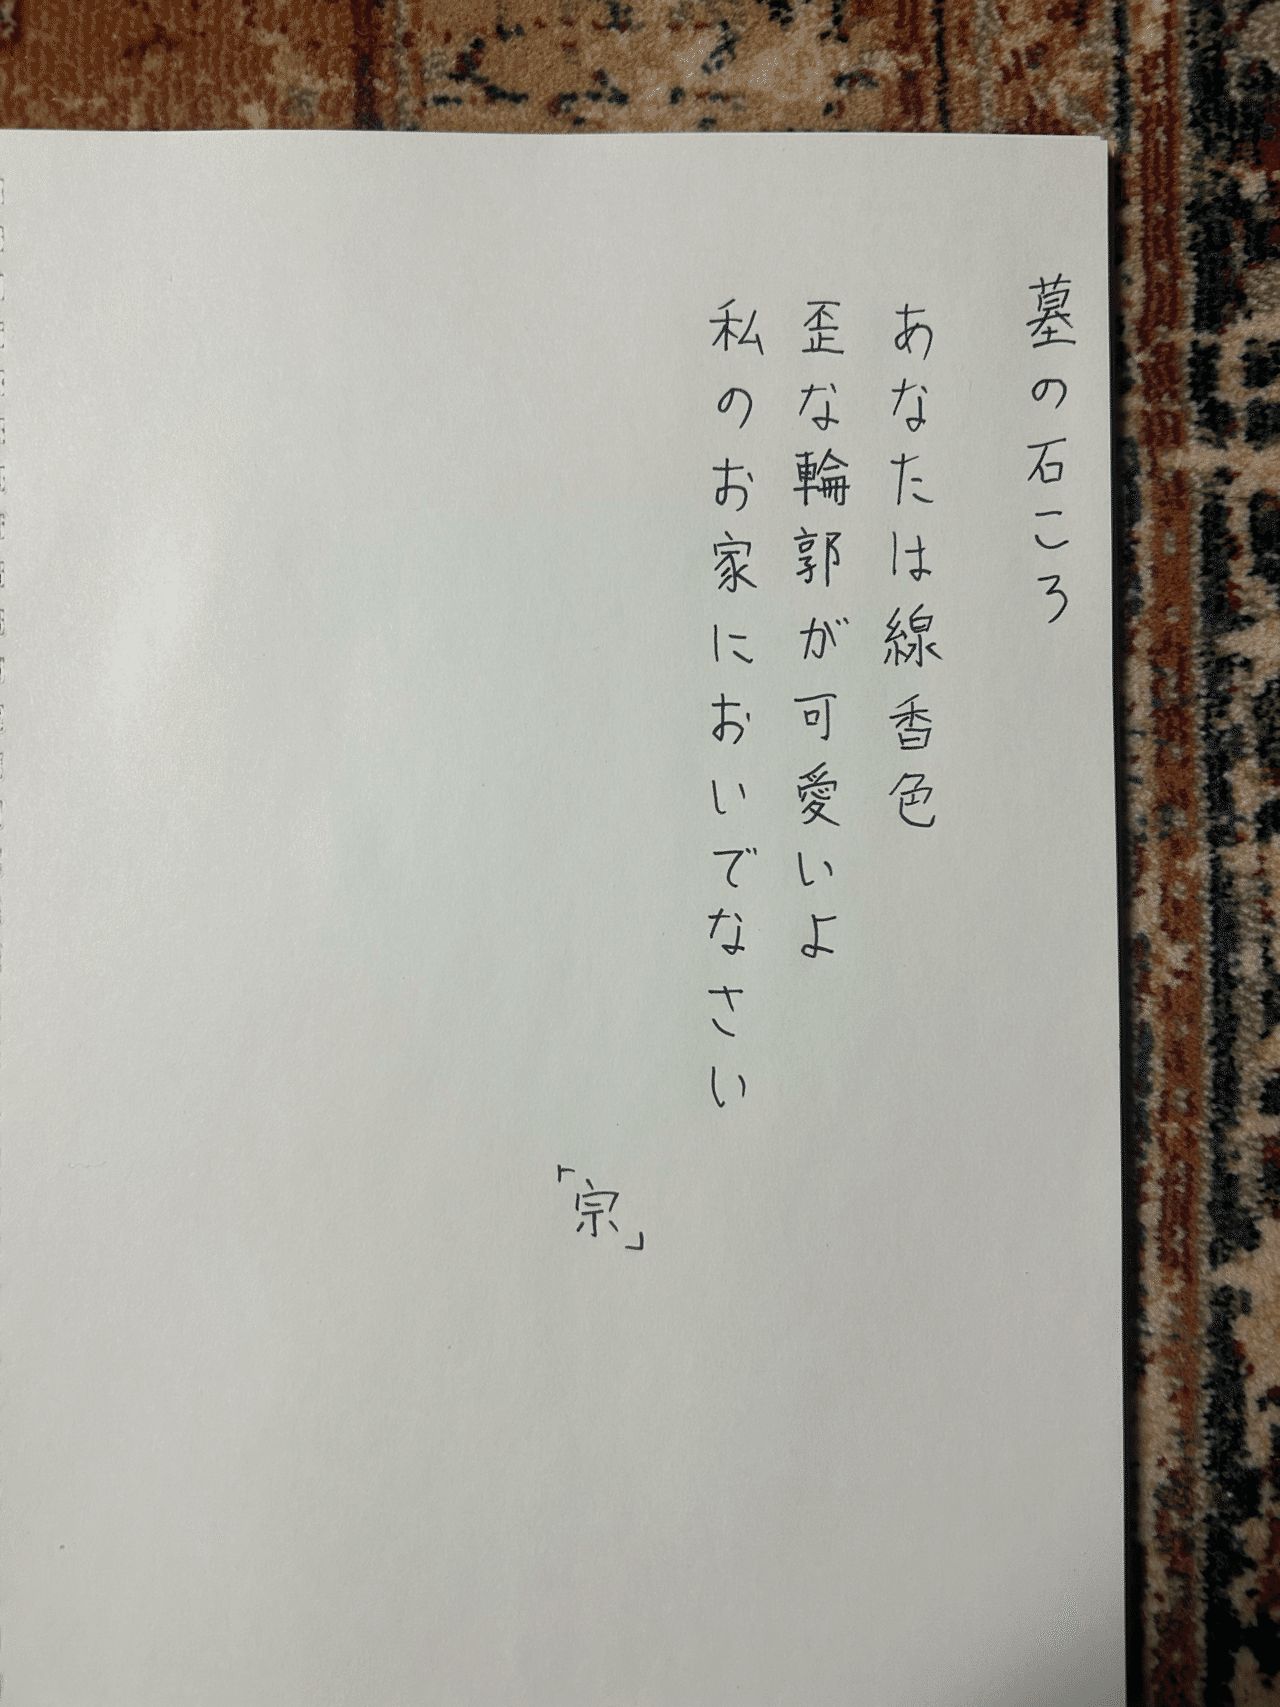 墓の石ころ
あなたは線香色
歪な輪郭が可愛いよ
私のお家においでなさい
「宗」